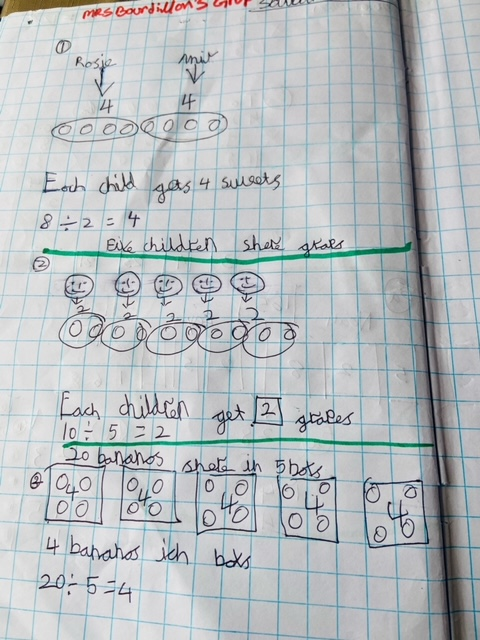 MRS Bourdillon's Group
①
Rosie
4 4
Each child gets 4 sweets
8 ÷ 2 = 4
Five children share grapes
②
2 2 2 2 2
Each children get 2 grapes
10 ÷ 5 = 2
20 bananos share in 5 boxs
4 4 4 4 4
4 bananos ich boxs
20 ÷ 5 = 4